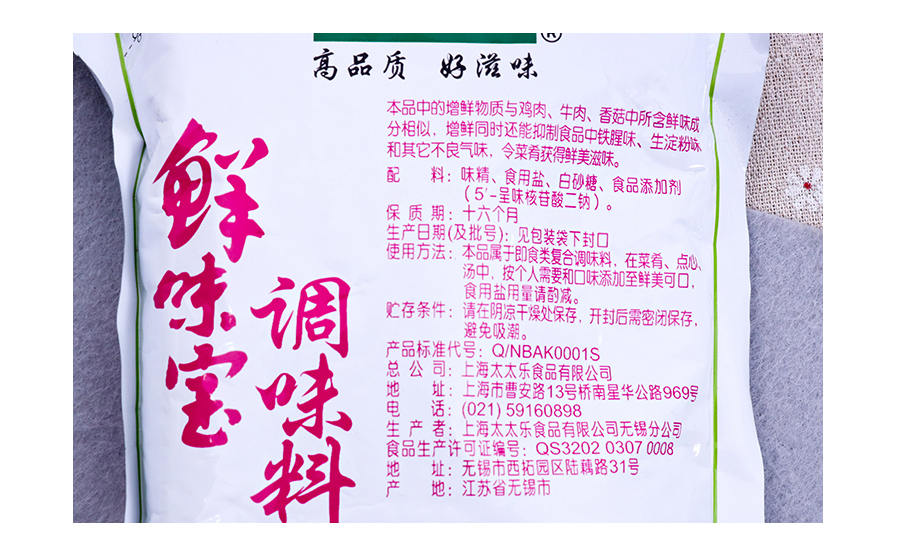 ®
高品质 好滋味
鲜味宝
调味料
本品中的增鲜物质与鸡肉、牛肉、香菇中所含鲜味成
分相似，增鲜同时还能抑制食品中铁腥味、生淀粉味
和其它不良气味，令菜肴获得鲜美滋味。
配 料：味精、食用盐、白砂糖、食品添加剂
（5′-呈味核苷酸二钠）。
保 质 期：十六个月
生产日期(及批号)：见包装袋下封口
使用方法：本品属于即食类复合调味料，在菜肴、点心、
汤中，按个人需要和口味添加至鲜美可口，
食用盐用量请酌减。
贮存条件：请在阴凉干燥处保存，开封后需密闭保存，
避免吸潮。
产品标准代号：Q/NBAK0001S
总 公 司：上海太太乐食品有限公司
地 址：上海市曹安路13号桥南星华公路969号
电 话：(021) 59160898
生 产 者：上海太太乐食品有限公司无锡分公司
食品生产许可证编号：QS3202 0307 0008
地 址：无锡市西拓园区陆藕路31号
产 地：江苏省无锡市